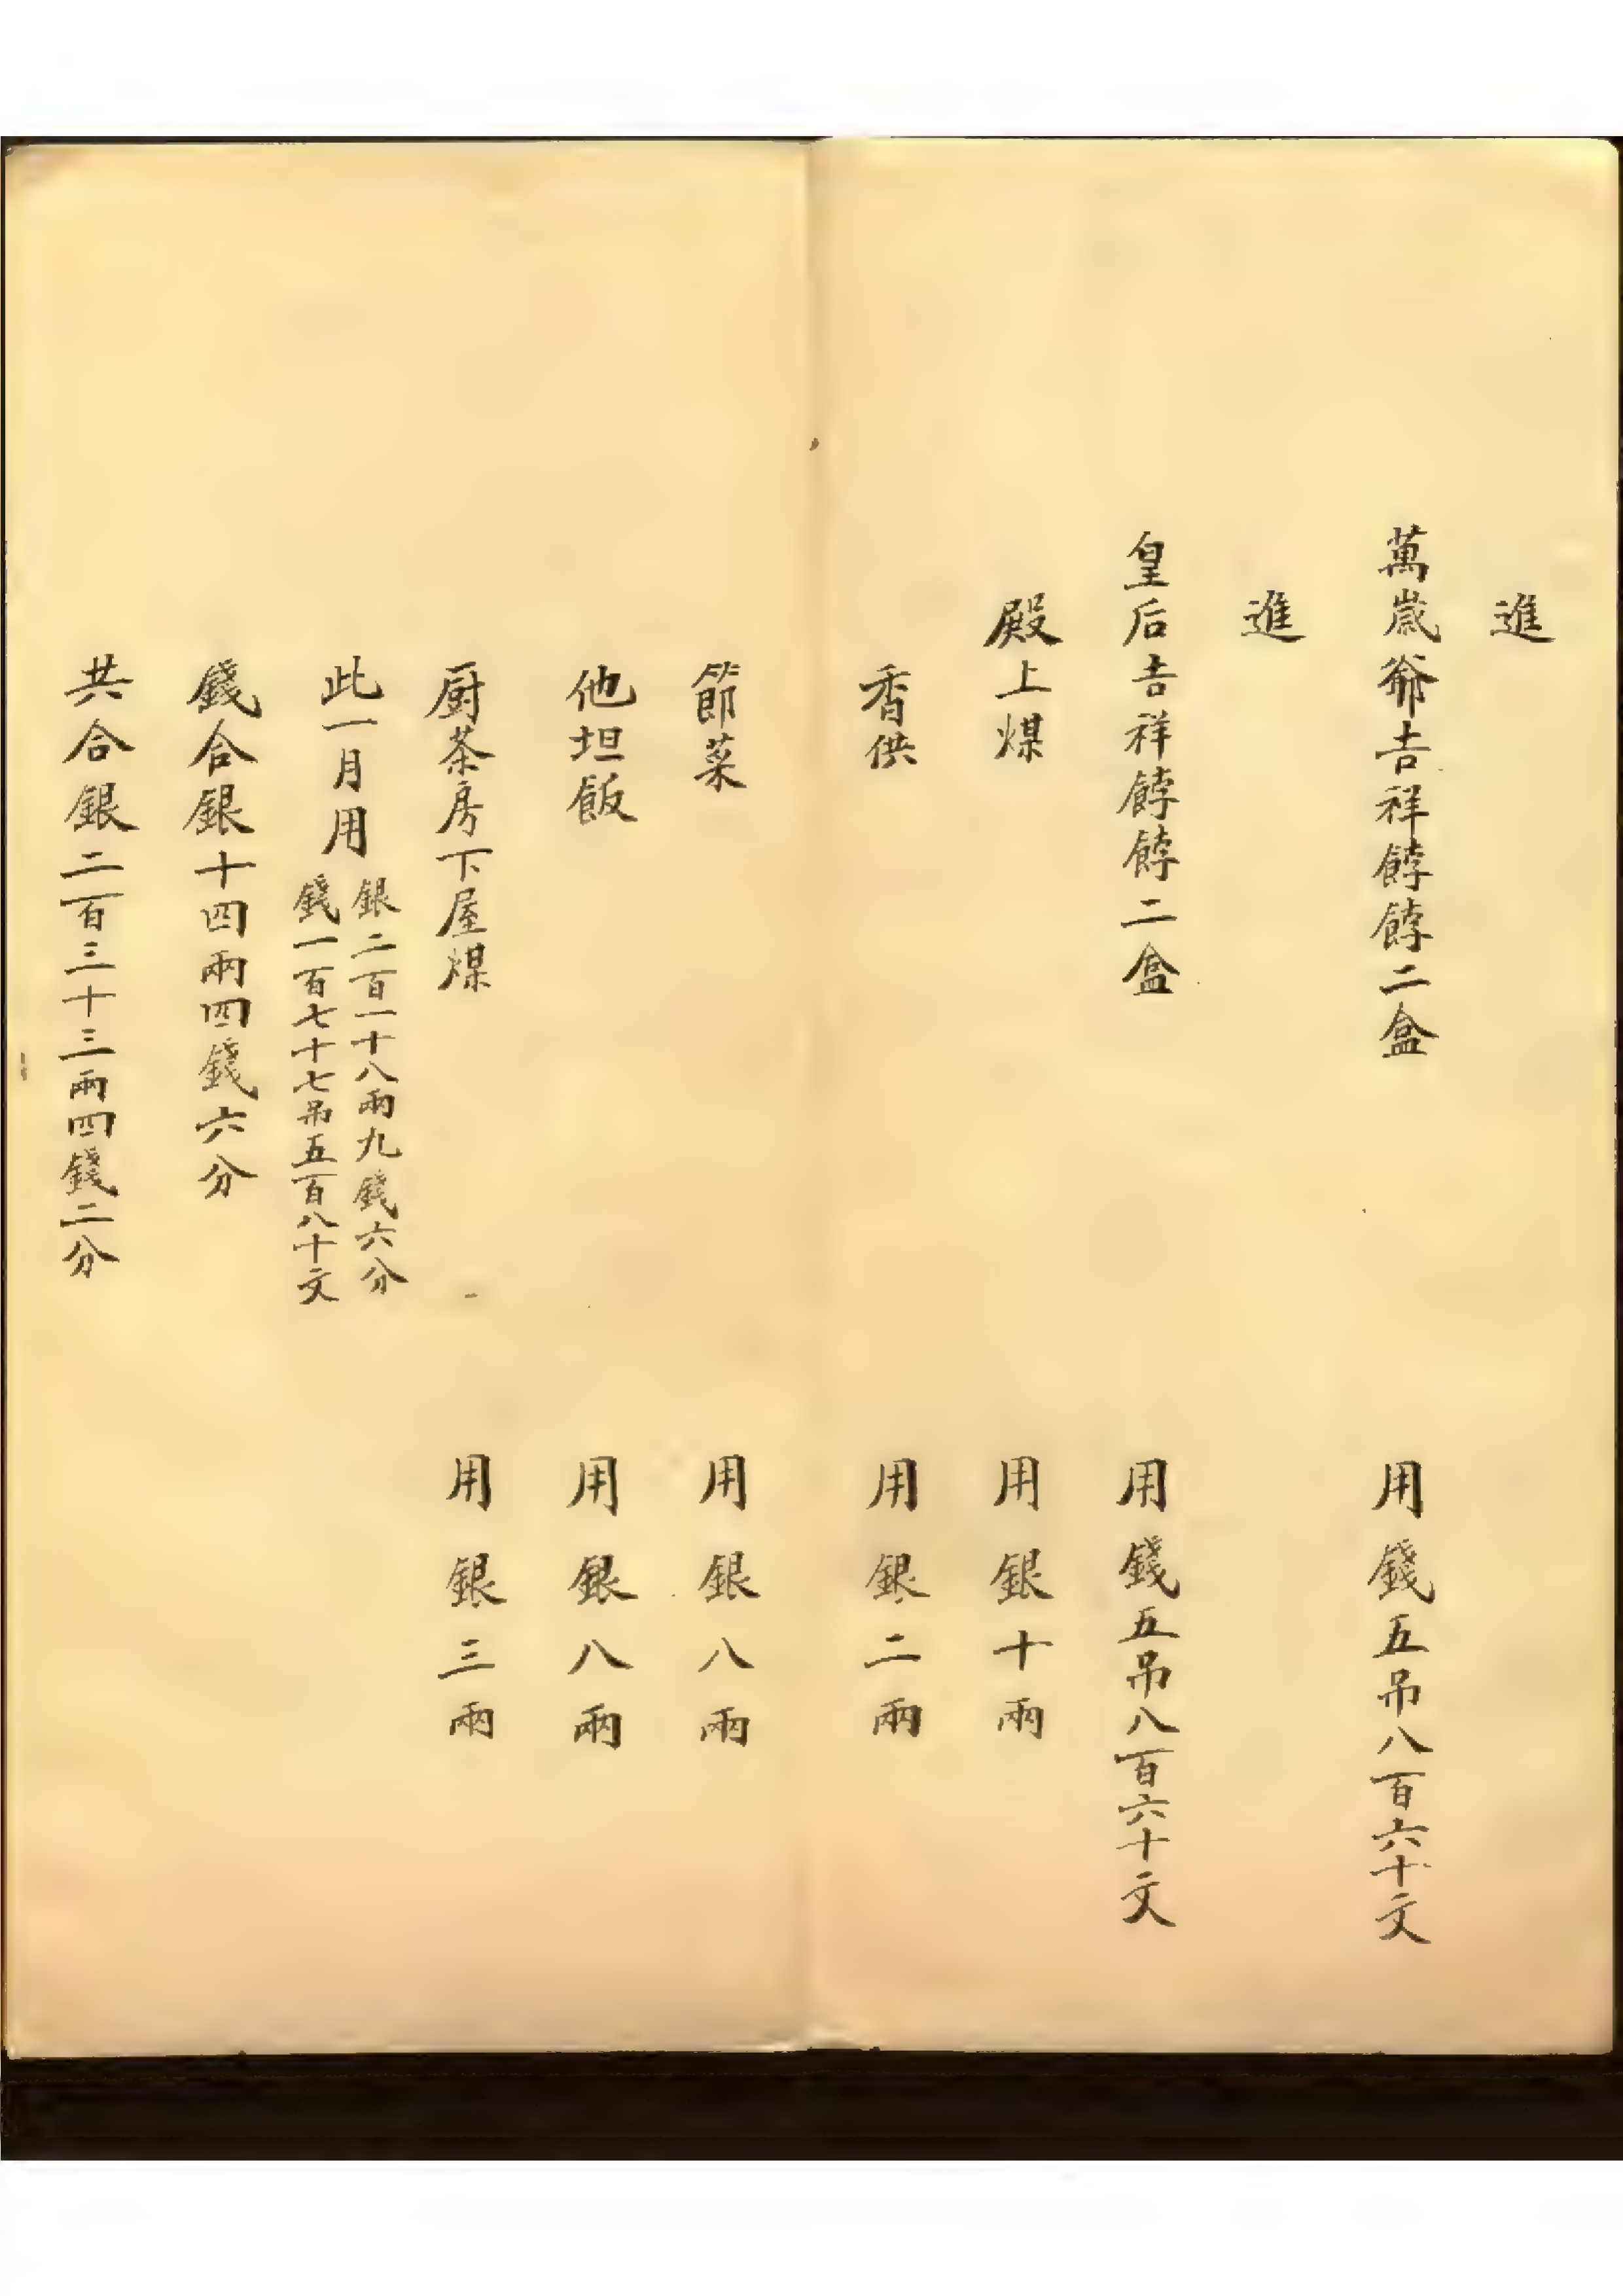 進
萬歲爺吉祥餑餑二盒　用錢五吊八百六十文
進
皇后吉祥餑餑二盒　用錢五吊八百六十文
殿上煤　用銀十兩
香供　用銀二兩
節菜　用銀八兩
他坦飯　用銀八兩
厨茶房下屋煤　用銀三兩
此一月用
銀二百一十八兩九錢六分
錢一百七十七吊五百八十文
錢合銀十四兩四錢六分
共合銀二百三十三兩四錢二分